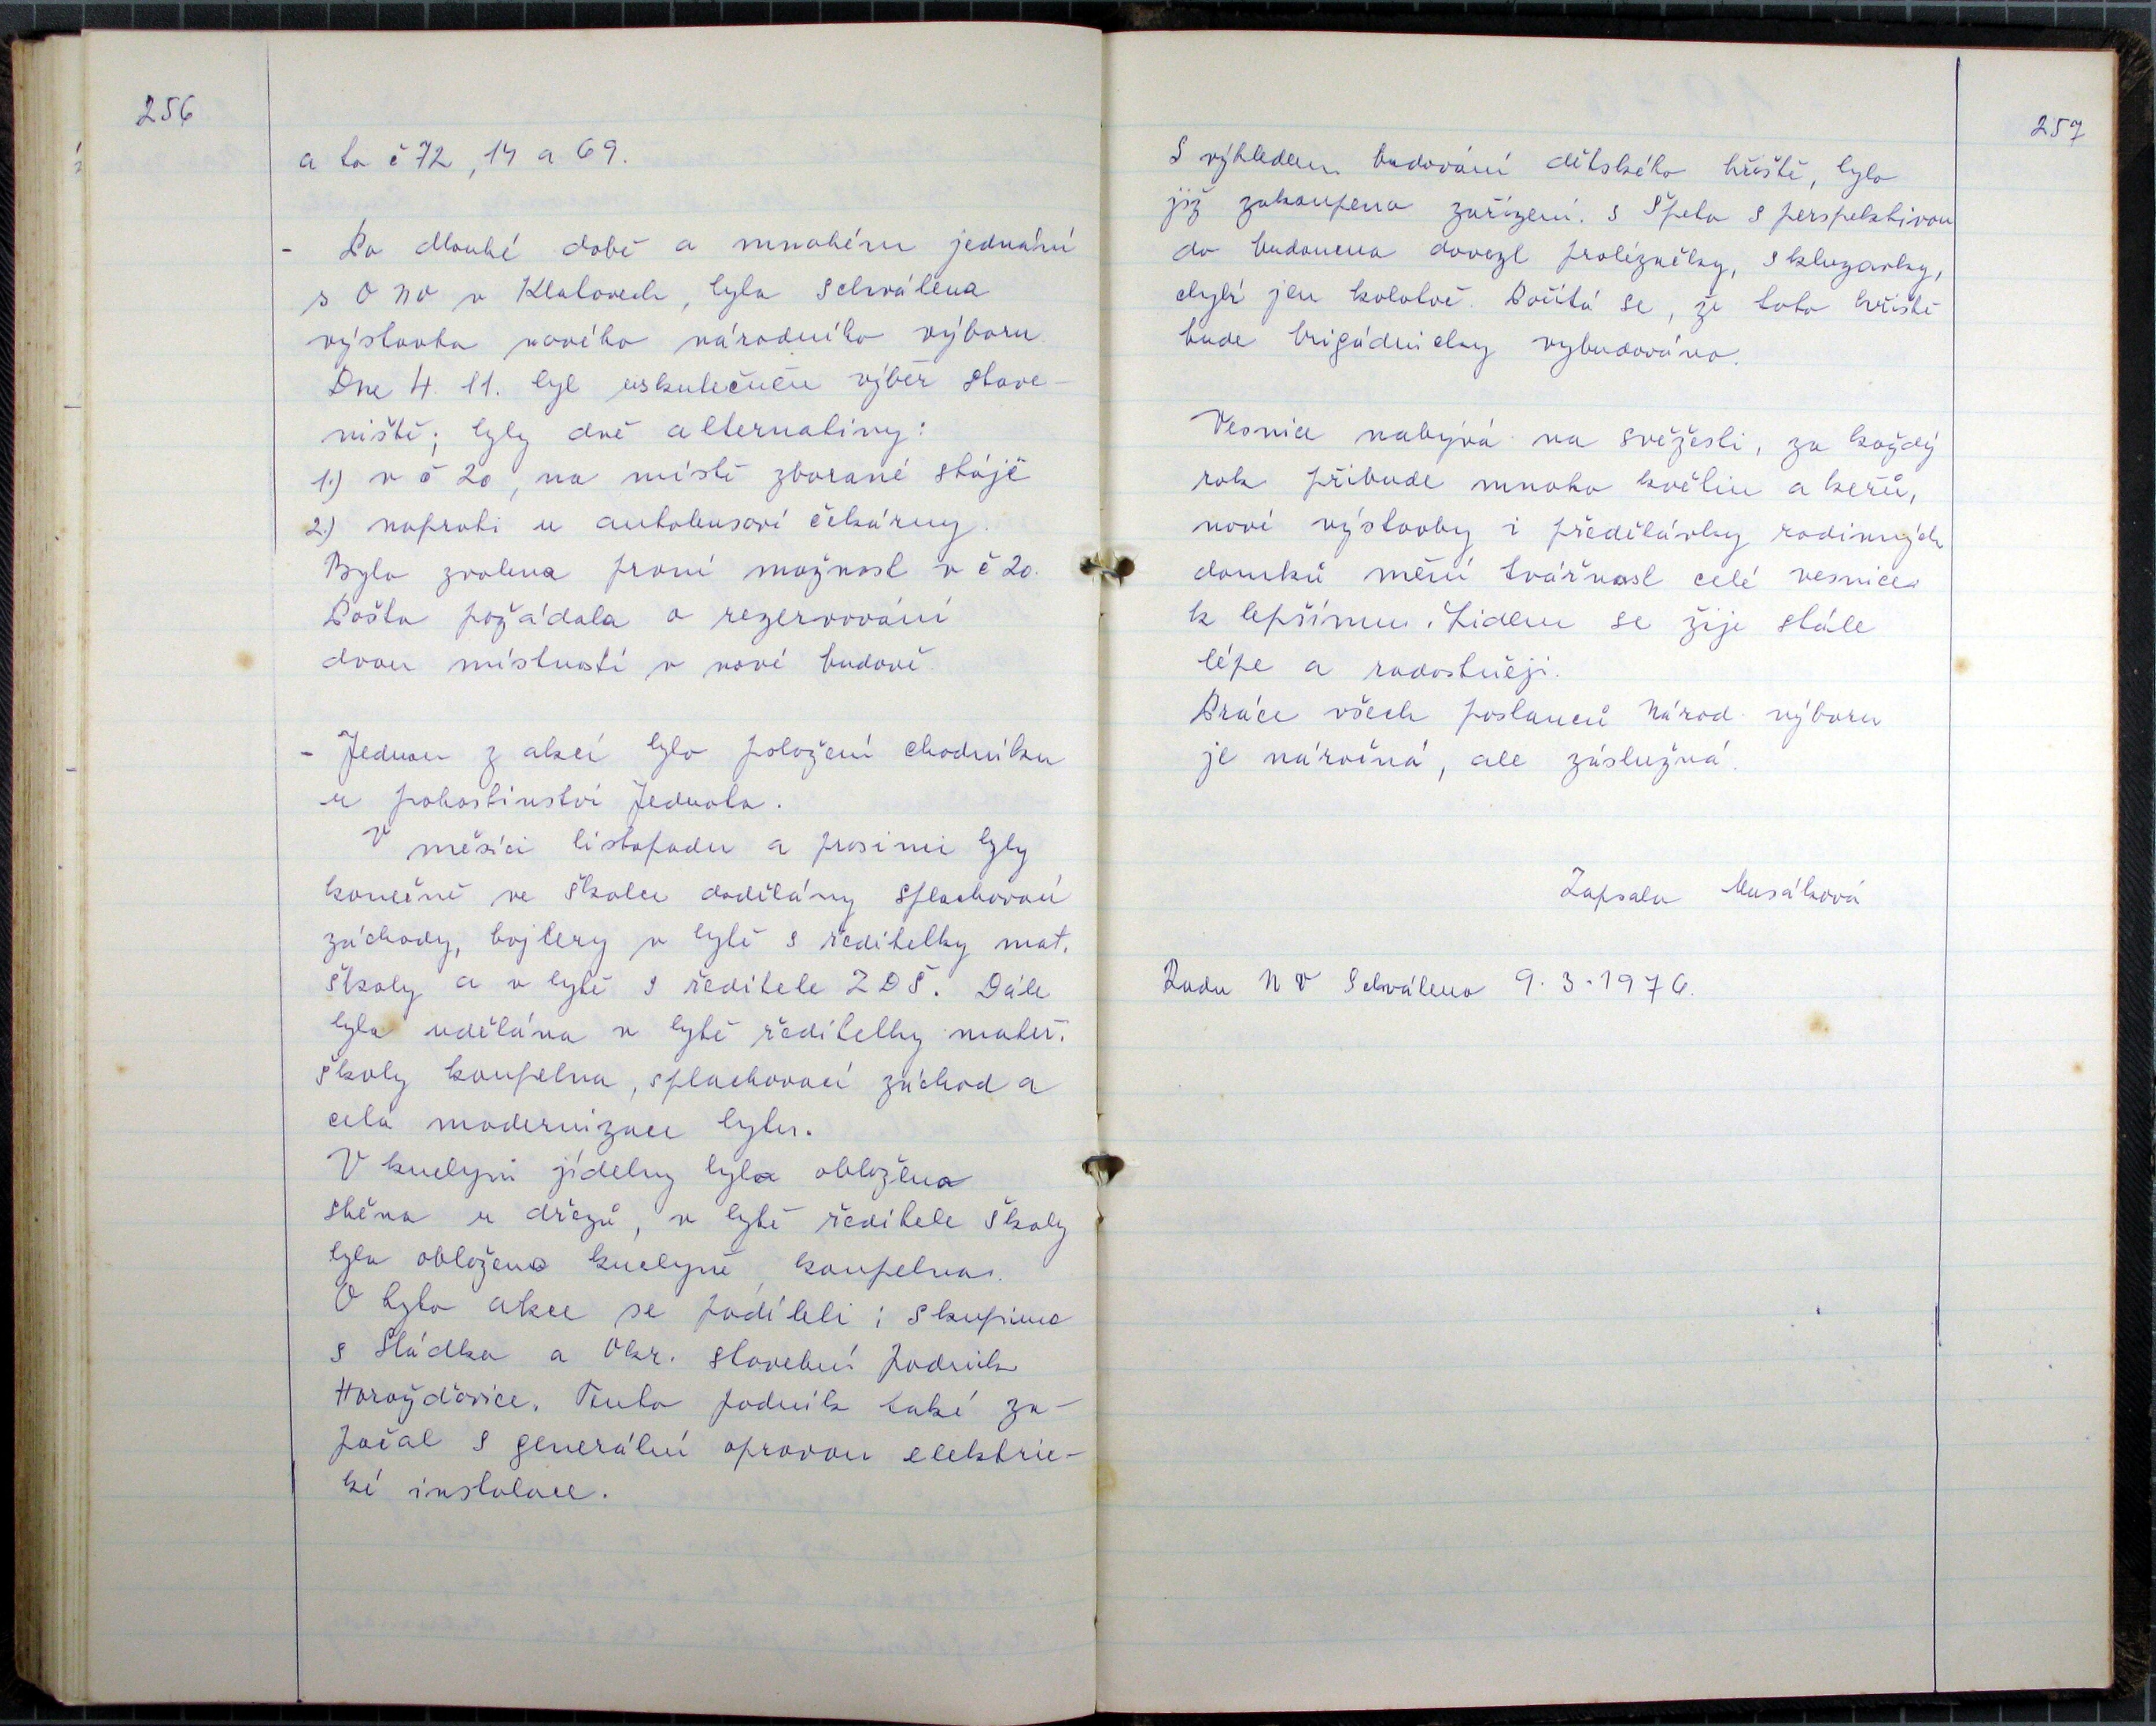 256
a to č 72, 14 a 69.
- Po dlouhé době a mnohém jednání
s ONV v Klatovech, byla schválena
výstavba nového národního výboru.
Dne 4. 11. byl uskutečněn výběr stave-
niště; byly dvě alternativy:
1.) v č 20, na místě zborané stáje
2.) naproti u autobusové čekárny.
Byla zvolena první možnost v č 20.
Pošta požádala o rezervování
dvou místností v nové budově.
- Jednou z akcí bylo položení chodníku
u pohostinství Jednota.
V měsíci listopadu a prosinci byly
konečně ve školce dodělány splachovací
záchody, bojlery v bytě s ředitelky mat.
školy a v bytě s ředitele ZDŠ. Dále
byla udělána v bytě ředitelky mateř.
školy koupelna, splachovací záchod a
celá modernizace bytu.
V kuchyni jídelny byla obložena
stěna u dřezů, v bytě ředitele školy
byla obložena kuchyně, koupelna.
O tyto akce se podíleli i skupina
s Sládka a Okr. stavební podnik
Horažďovice. Tento podnik také za-
počal s generální opravou elektric-
ké instalace.
257
S výhledem budování dětského hřiště, bylo
již zakoupeno zařízení. s Špeta s perspektivou
do budoucna dovezl prolézačky, skluzavky,
chybí jen kolotoč. Počítá se, že toto hřiště
bude brigádnicky vybudováno.
Vesnice nabývá na svěžesti, za každý
rok přibude mnoho květin a keřů,
nové výstavby i předělávky rodinných
domků mění tvářnost celé vesnice
k lepšímu. Lidem se žije stále
lépe a radostněji.
Práce všech poslanců Národ. výboru
je náročná, ale záslužná.
Zapsala Musáková
Radu NV Schváleno 9. 3. 1976.